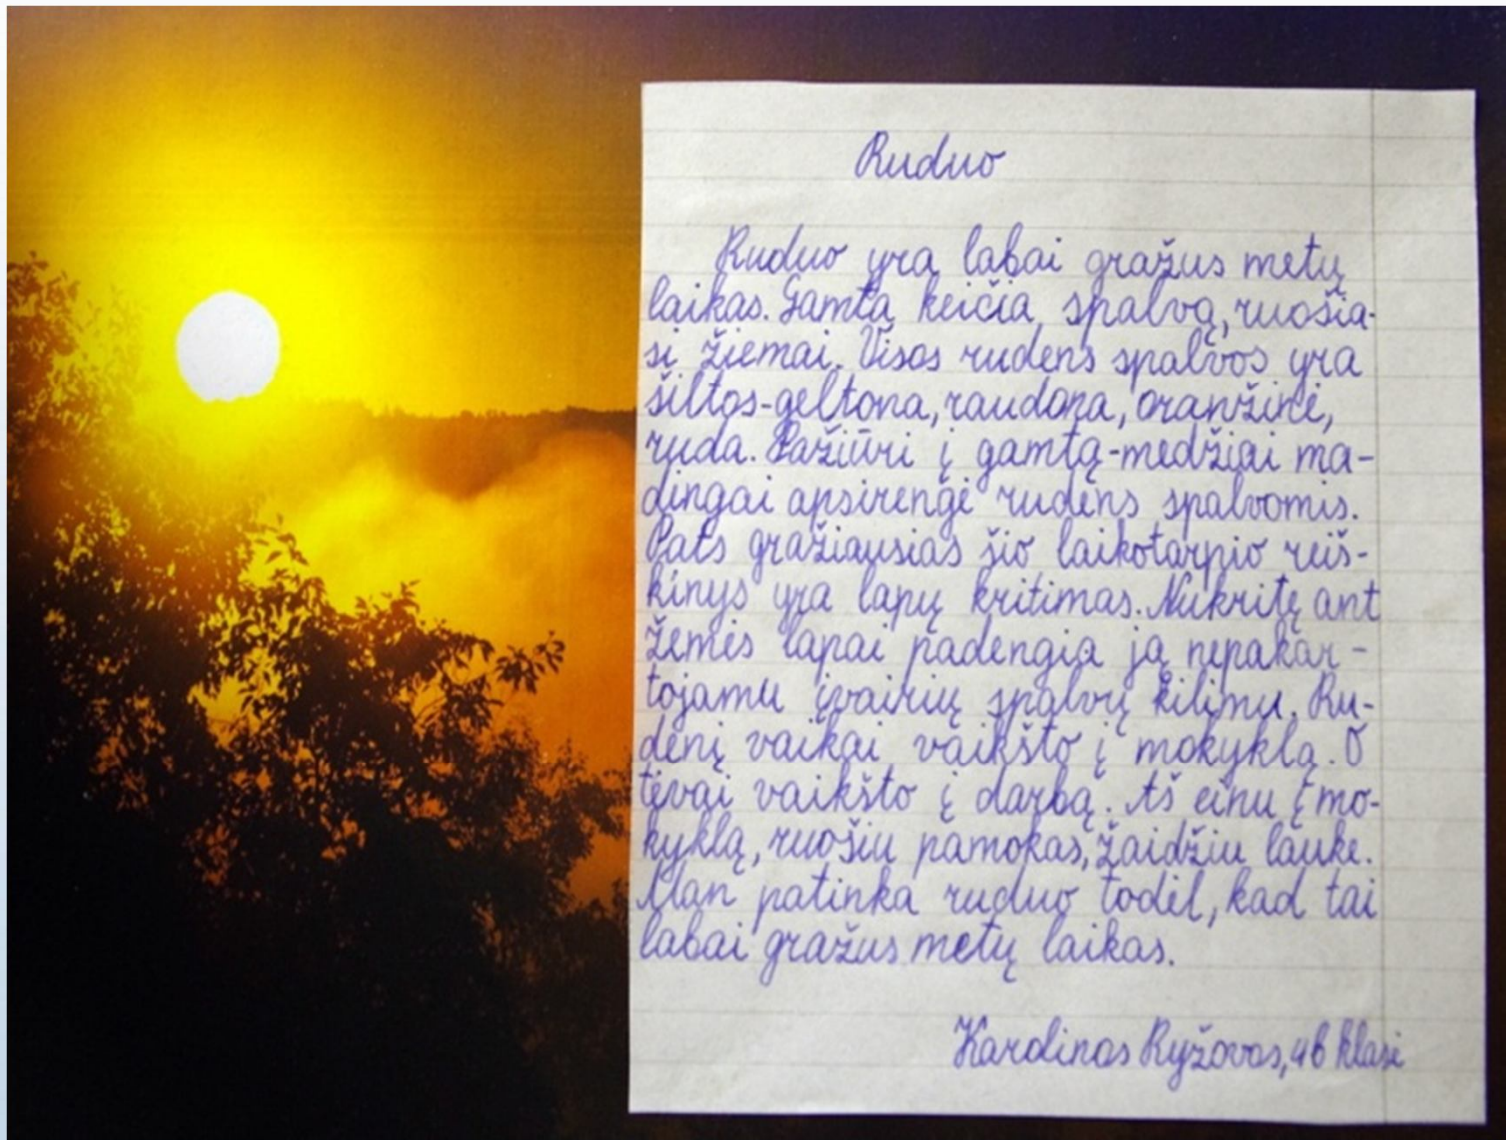 Ruduo
Ruduo yra labai gražus metų
laikas. Gamta keičia spalvą, ruošia-
si žiemai. Visos rudens spalvos yra
šiltos-geltona, raudona, oranžinė,
ruda. Pažiūri į gamtą-medžiai ma-
dingai apsirengė rudens spalvomis.
Pats gražiausias šio laikotarpio reiš-
kinys yra lapų kritimas. Nukritę ant
žemės lapai padengia ją nepakar-
tojamu įvairių spalvų kilimu. Ru-
denį vaikai vaikšto į mokyklą. O
tėvai vaikšto į darbą. Aš einu į mo-
kyklą, ruošiu pamokas, žaidžiu lauke.
Man patinka ruduo todėl, kad tai
labai gražus metų laikas.
Karolinas Ryžovas, 4b klasė